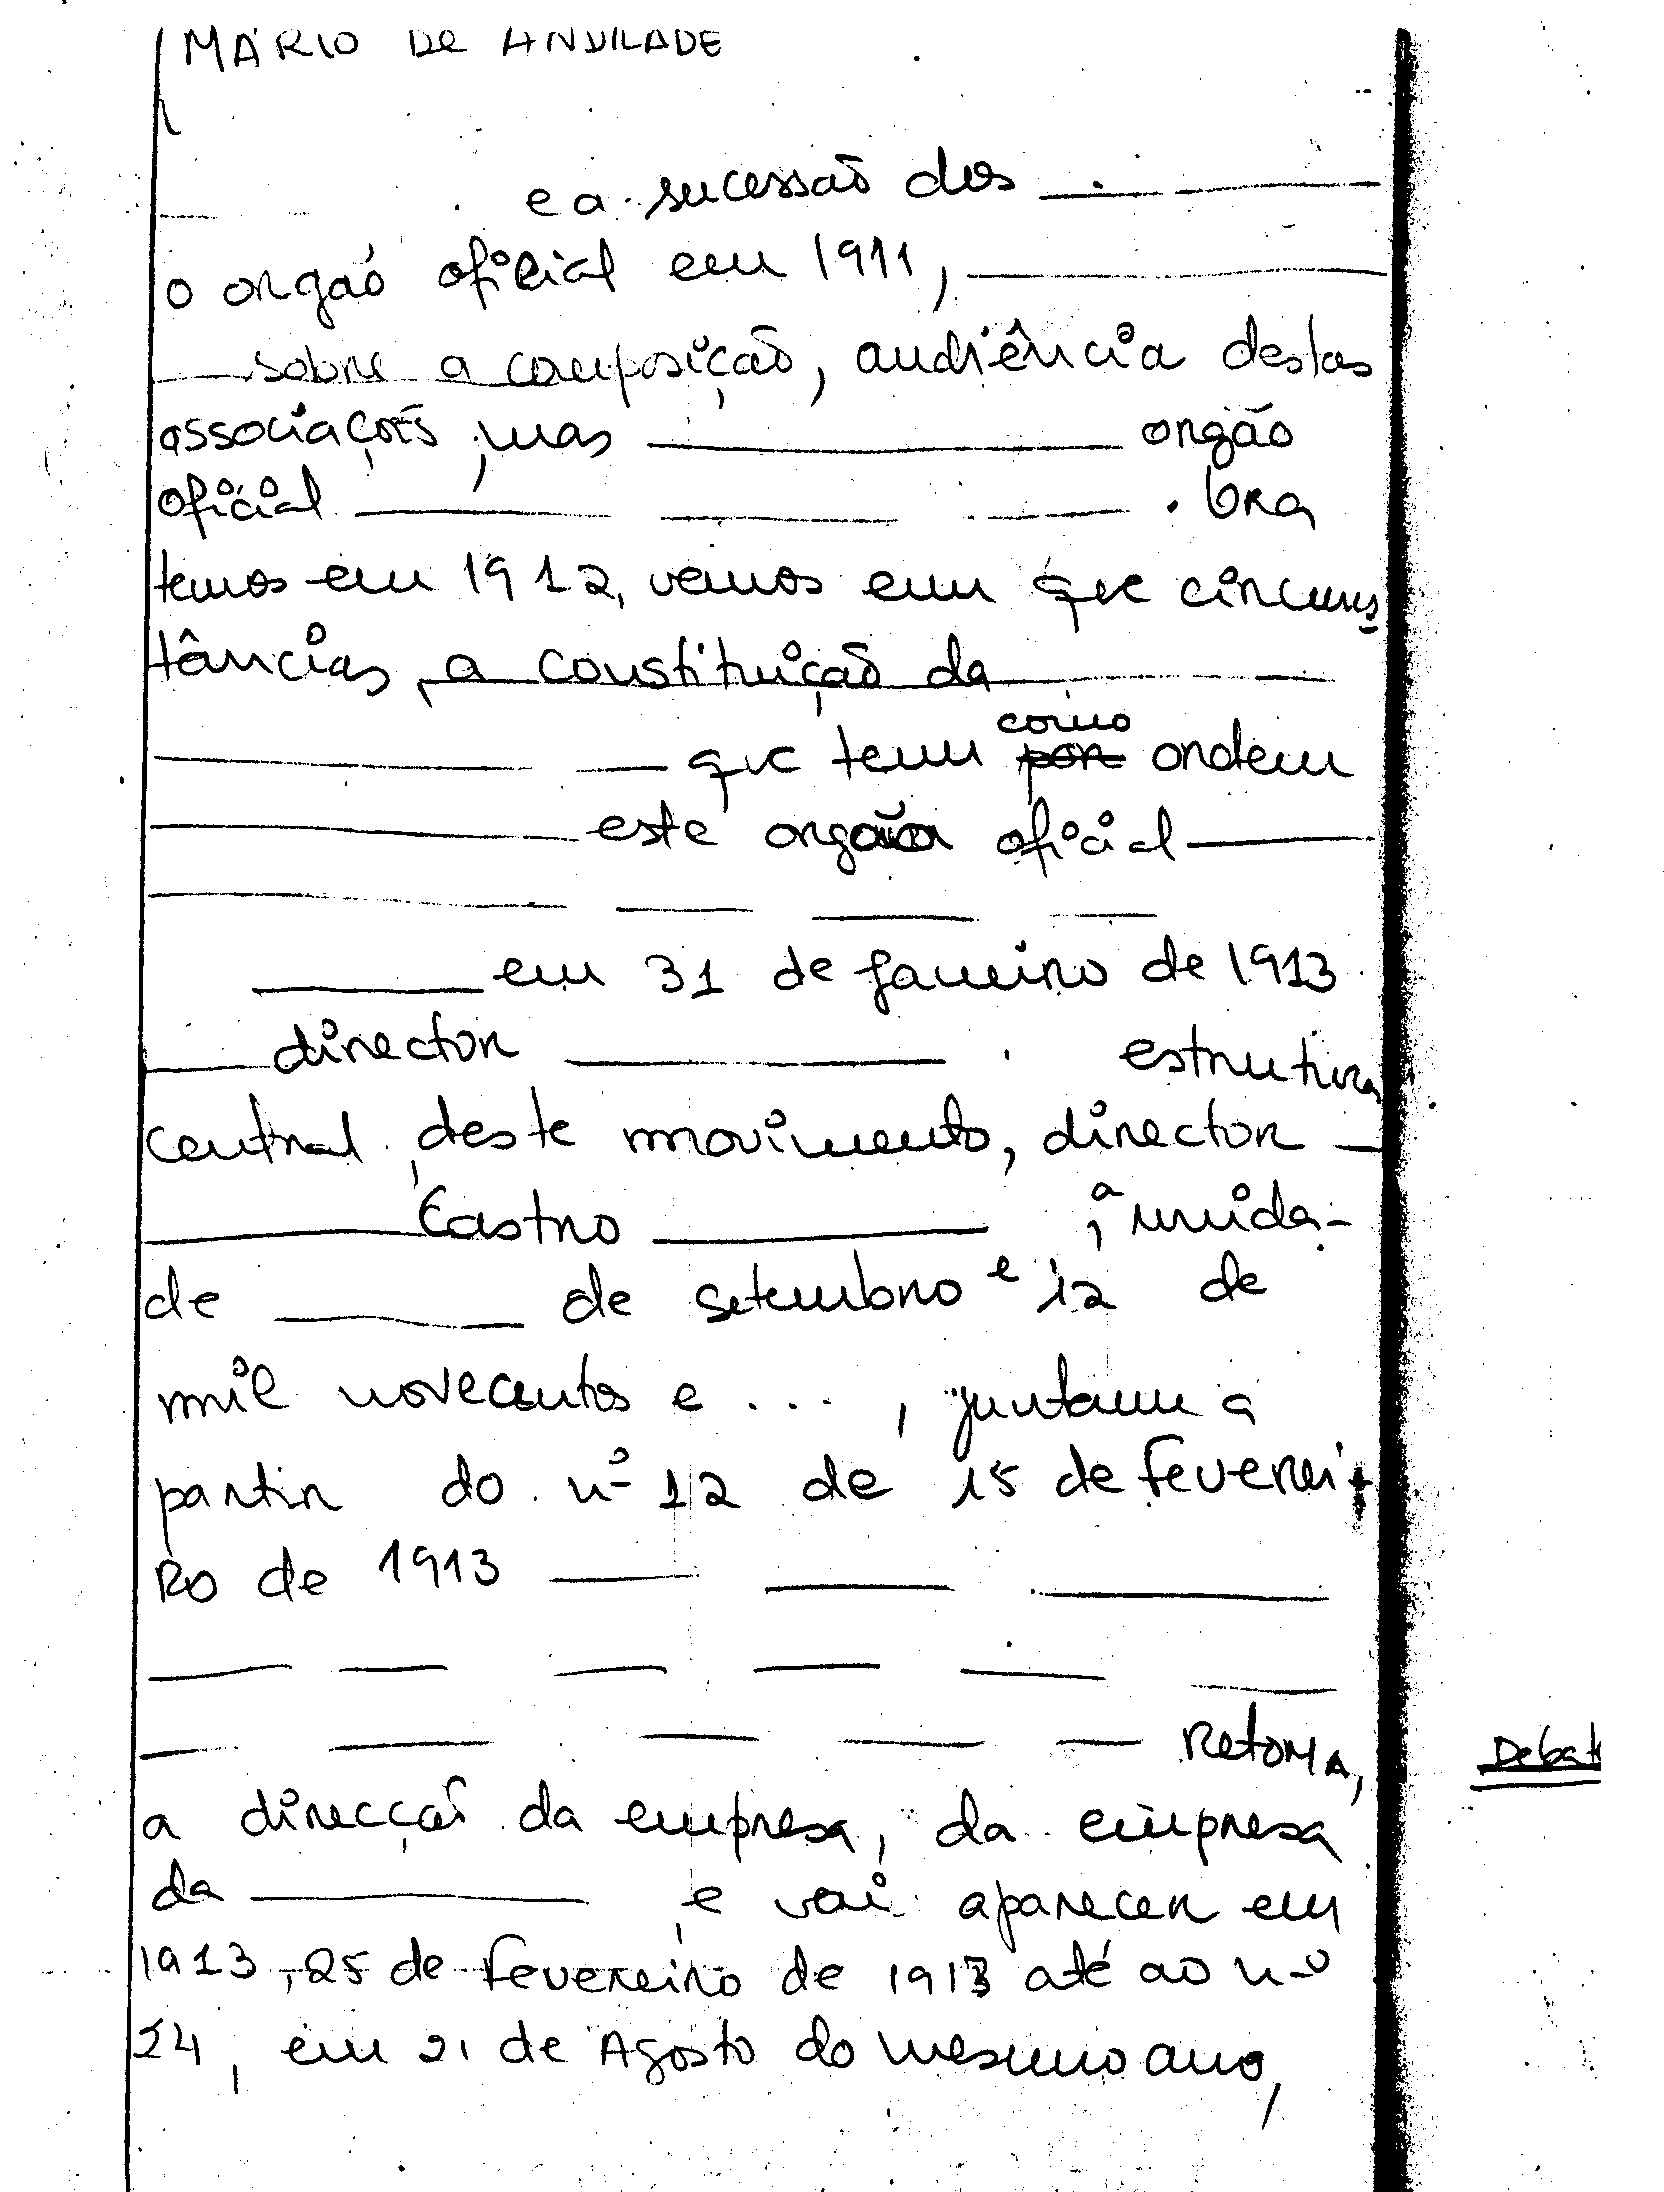 MÁRIO DE ANDRADE
e a sucessão dos ____ ____
o orgão oficial em 1911, ____
____ sobre a composição, audiência destas
associações, mas ____ orgão
oficial ____ ____ ____. Ora
temos em 1912, vemos em que circuns
tâncias, a constituição da ____
____ ____ que tem como por ordem
____ este orgão oficial ____
____ ____ ____ ____
____ em 31 de Janeiro de 1913
____ director ____. estrutura
central, deste movimento, director _
____ Castro ____, a unida-
de ____ de setembro e 12 de
mil novecentos e ..., juntam a
partir do nº 12 de 15 de fevereі-
Ro de 1913 ____ ____ ____
____ ____ ____ ____ ____ ____
____ ____ ____ ____ ____ RetoMA,
Debat
a direcção da empresa, da empresa
da ____, e vai aparecer em
1913, 25 de fevereiro de 1913 até ao nº
24, em 21 de Agosto do mesmo ano,